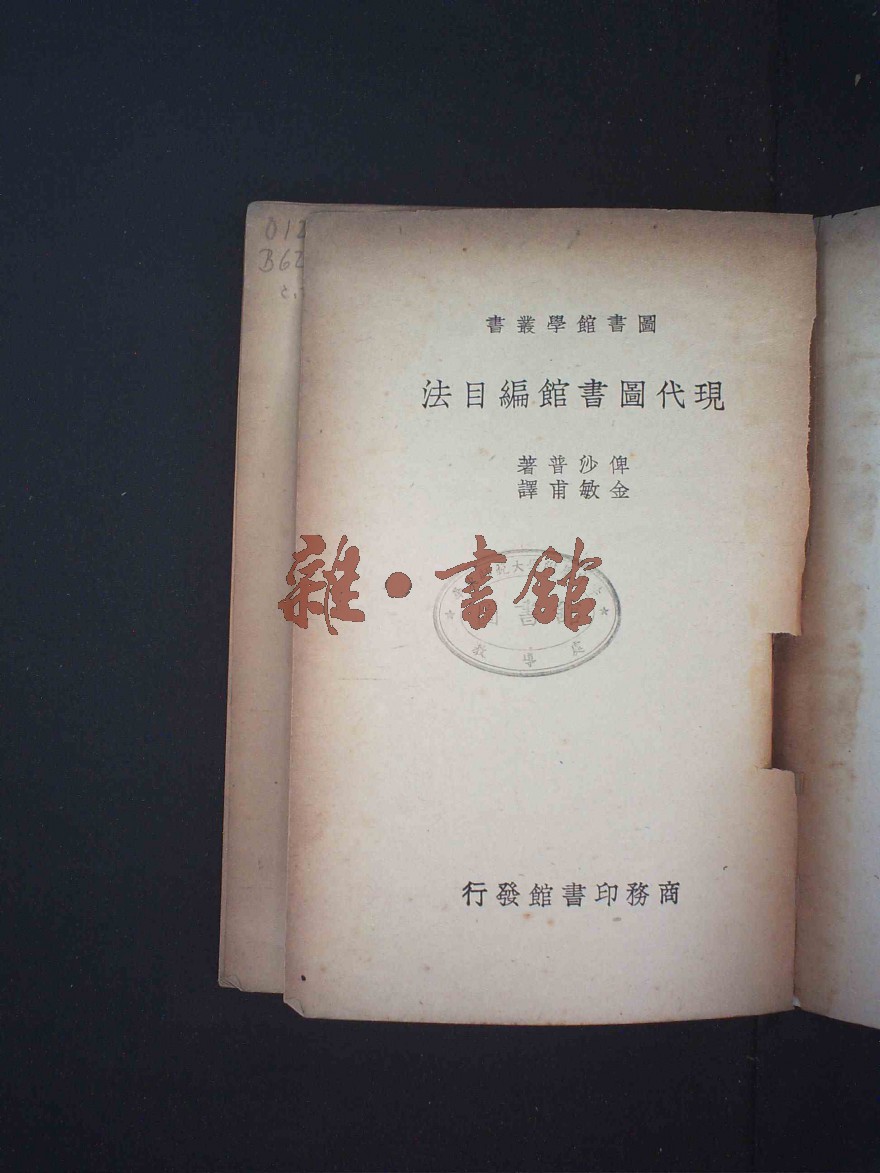 012
B62
圖書館學叢書
現代圖書館編目法
俾沙普著
金敏甫譯
雜·書館
教導處
商務印書館發行